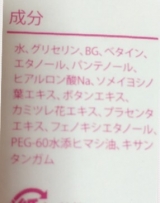 成分
水、グリセリン、BG、ベタイン、
エタノール、パンテノール、
ヒアルロン酸Na、ソメイヨシノ
葉エキス、ボタンエキス、
カミツレ花エキス、プラセンタ
エキス、フェノキシエタノール、
PEG-60水添ヒマシ油、キサン
タンガム